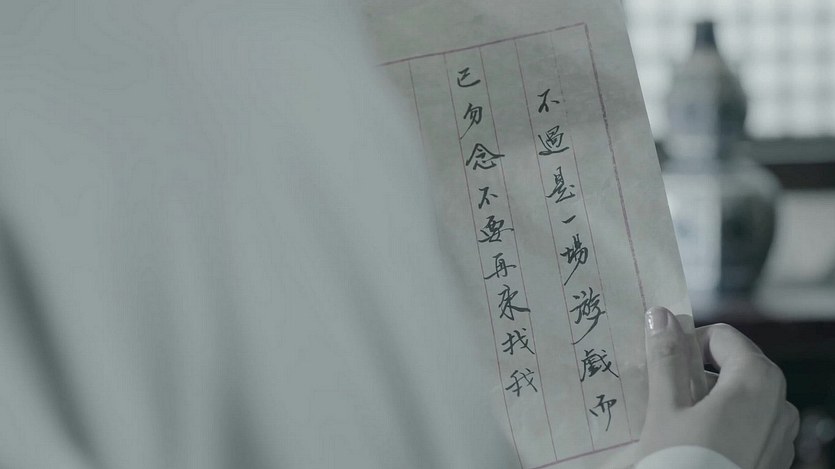 不過是一場游戲而
已勿念不要再來找我